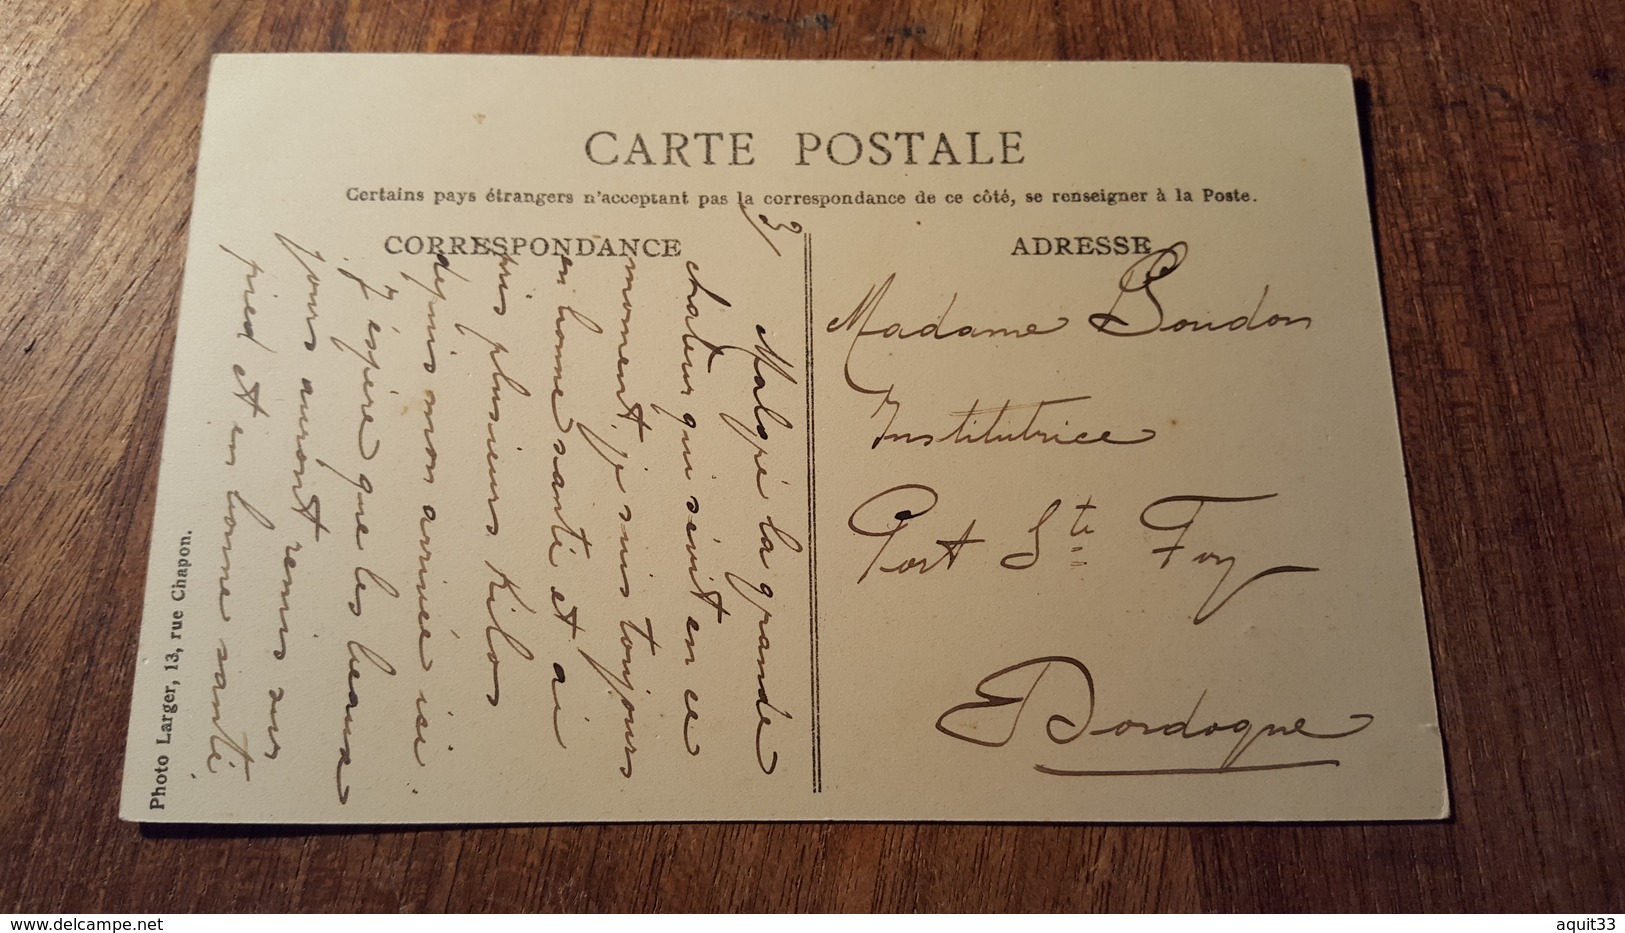 CARTE POSTALE
Certains pays étrangers n'acceptant pas la correspondance de ce côté, se renseigner à la Poste.
CORRESPONDANCE
3/
Malgré la grande
chaleur qui sévit en ce
moment, je suis toujours
en bonne santé et ai
pris plusieurs kilos
depuis mon arrivée ici.
J'espère que les beaux
jours auront remis sur
pied et en bonne santé
ADRESSE
Madame Soudon
Institutrice
Port Ste Foy
Dordogne
Photo Larger, 13, rue Chapon.
aquit33